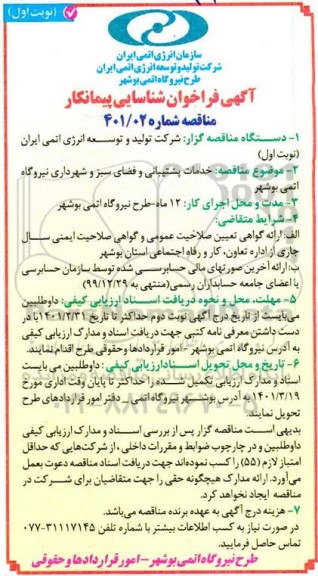 (نوبت اول)
سازمان انرژی اتمی ایران
شرکت تولید و توسعه انرژی اتمی ایران
طرح نیروگاه اتمی بوشهر
آگهی فراخوان شناسایی پیمانکار
مناقصه شماره ۴۰۱/۰۲
۱- دستگاه مناقصه گزار: شرکت تولید و توسعه انرژی اتمی ایران
(نوبت اول)
۲-موضوع مناقصه: خدمات پشتیبانی و فضای سبز و شهرداری نیروگاه
اتمی بوشهر
۳-مدت و محل اجرای کار: ۱۲ ماه-طرح نیروگاه اتمی بوشهر
۴- شرایط متقاضی:
الف: ارائه گواهی تعیین صلاحیت عمومی و گواهی صلاحیت ایمنی سال
جاری از اداره تعاون، کار و رفاه اجتماعی استان بوشهر
ب: ارائه آخرین صورتهای مالی حسابرسی شده توسط سازمان حسابرسی
یا اعضای جامعه حسابداران رسمی(منتهی به ۹۹/۱۲/۲۹)
۵- مهلت، محل و نحوه دریافت اسناد ارزیابی کیفی: داوطلبین
می‌بایست از تاریخ درج آگهی نوبت دوم حداکثر تا تاریخ ۱۴۰۱/۲/۳۱ با در
دست داشتن معرفی نامه کتبی جهت دریافت اسناد و مدارک ارزیابی کیفی
به آدرس نیروگاه اتمی بوشهر-امور قراردادها و حقوقی طرح اقدام نمایند.
۶- تاریخ و محل تحویل اسناد ارزیابی کیفی: داوطلبین می بایست
اسناد و مدارک ارزیابی تکمیل شده را حداکثر تا پایان وقت اداری مورخ
۱۴۰۱/۳/۱۹ به آدرس بوشهر نیروگاه اتمی_ دفتر امور قراردادهای طرح
تحویل نمایند.
بدیهی است مناقصه گزار پس از بررسی اسناد و مدارک ارزیابی کیفی
داوطلبین و در چارچوب ضوابط و مقررات داخلی ، از شرکت‌هایی که حداقل
امتیاز لازم (۵۵) را کسب نموده‌اند جهت دریافت اسناد مناقصه دعوت بعمل
می‌آورد. ارائه مدارک هیچگونه حقی را جهت متقاضیان برای شرکت در
مناقصه ایجاد نخواهد کرد.
۷- هزینه درج آگهی به عهده برنده مناقصه می‌باشد.
در صورت نیاز به کسب اطلاعات بیشتر با شماره تلفن ۳۱۱۱۷۱۴۵-۰۷۷
تماس حاصل فرمایید.
طرح نیروگاه اتمی بوشهر - امور قراردادها و حقوقی